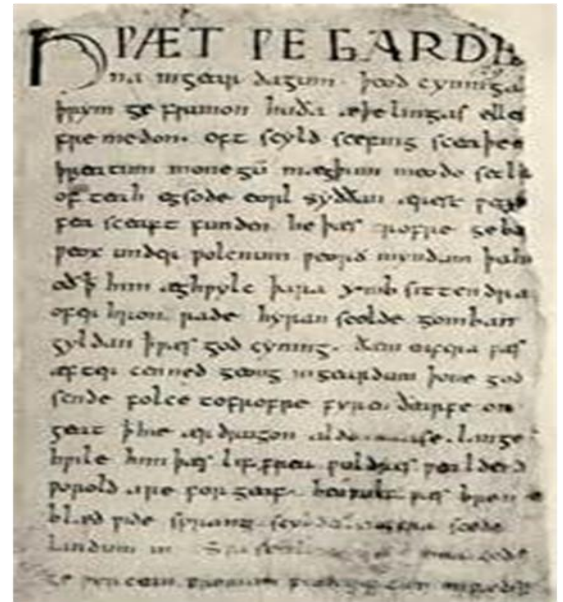 HǷÆT ǷE GARDE
na ingear dagum. þeod cyninga
þrym ge frunon huða æþelingas elle
fre medon. oft scyld scefing sceaþe
þreatum monegū mægþum meodo setla
of teah egsode eorl syððan ærest ƿearð
fea sceaft funden he þæs frofre geba
ƿeox under ƿolcnum ƿeorð myndum þah
oð ꝥ him æghƿylc þara ymb sittendra
ofer hron rade hyran scolde gomban
gyldan ꝥ ƿæs god cyning. ðæm eafera ƿæs
æfter cenned geong in geardum þone god
sende folce tofrofre fyren ðearfe on
geat ꝥ hie ær drugon aldor ase. lange
hƿile him þæs lif frea ƿuldres ƿealdend
ƿorold are for geaf. beoƿulf ƿæs breme
blæd ƿide sprang scyldes eafera scede
landum in gode
ge ƿyrcean fromum